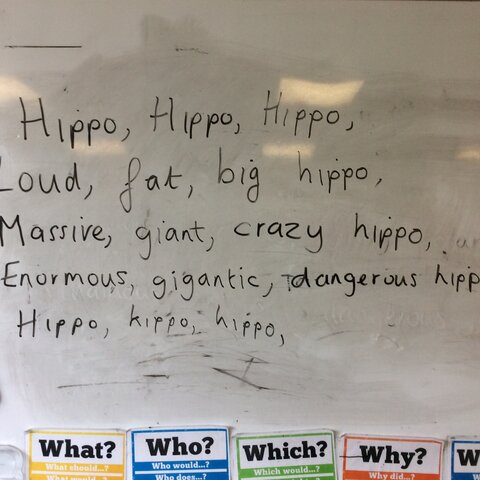 Hippo, Hippo, Hippo,
Loud, fat, big hippo,
Massive, giant, crazy hippo,
Enormous, gigantic, dangerous hipp
Hippo, hippo, hippo,
What? Who? Which? Why?
What should...? Who would...? Which would...? Why did...?
What would...? Who does...?